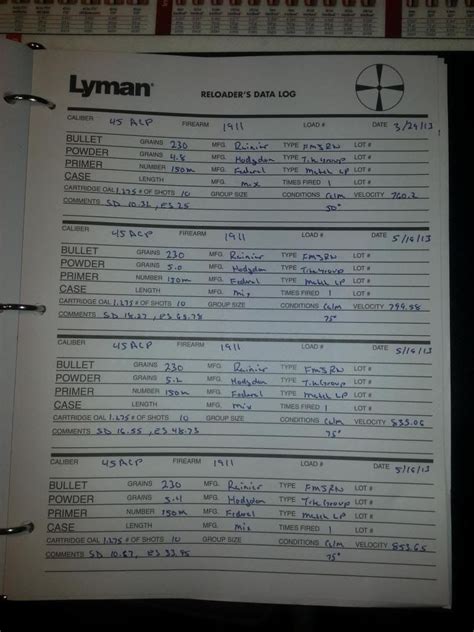 Lyman® RELOADER'S DATA LOG
CALIBER 45 ACP FIREARM 1911 LOAD # DATE 3/29/13
BULLET GRAINS 230 MFG. Rainier TYPE FMJRN LOT #
POWDER GRAINS 4.8 MFG. Hodgdon TYPE Titegroup LOT #
PRIMER NUMBER 150m MFG. Federal TYPE Match LP LOT #
CASE LENGTH MFG. Mix TIMES FIRED 1 LOT #
CARTRIDGE OAL 1.275 # OF SHOTS 10 GROUP SIZE CONDITIONS Calm VELOCITY 760.2
COMMENTS SD 10.36, ES 25 50°
CALIBER 45 ACP FIREARM 1911 LOAD # DATE 5/16/13
BULLET GRAINS 230 MFG. Rainier TYPE FMJRN LOT #
POWDER GRAINS 5.0 MFG. Hodgdon TYPE Titegroup LOT #
PRIMER NUMBER 150m MFG. Federal TYPE Match LP LOT #
CASE LENGTH MFG. Mix TIMES FIRED 1 LOT #
CARTRIDGE OAL 1.275 # OF SHOTS 10 GROUP SIZE CONDITIONS Calm VELOCITY 794.58
COMMENTS SD 18.27, ES 63.78 75°
CALIBER 45ACP FIREARM 1911 LOAD # DATE 5/16/13
BULLET GRAINS 230 MFG. Rainier TYPE FMJRN LOT #
POWDER GRAINS 5.2 MFG. Hodgdon TYPE Titegroup LOT #
PRIMER NUMBER 150m MFG. Federal TYPE Match LP LOT #
CASE LENGTH MFG. Mix TIMES FIRED 1 LOT #
CARTRIDGE OAL 1.275 # OF SHOTS 10 GROUP SIZE CONDITIONS Calm VELOCITY 835.06
COMMENTS SD 16.55, ES 48.73 75°
CALIBER 45ACP FIREARM 1911 LOAD # DATE 5/16/13
BULLET GRAINS 230 MFG. Rainier TYPE FMJRN LOT #
POWDER GRAINS 5.4 MFG. Hodgdon TYPE Titegroup LOT #
PRIMER NUMBER 150m MFG. Federal TYPE Match LP LOT #
CASE LENGTH MFG. Mix TIMES FIRED 1 LOT #
CARTRIDGE OAL 1.275 # OF SHOTS 10 GROUP SIZE CONDITIONS Calm VELOCITY 853.65
COMMENTS SD 10.87, ES 33.95 75°